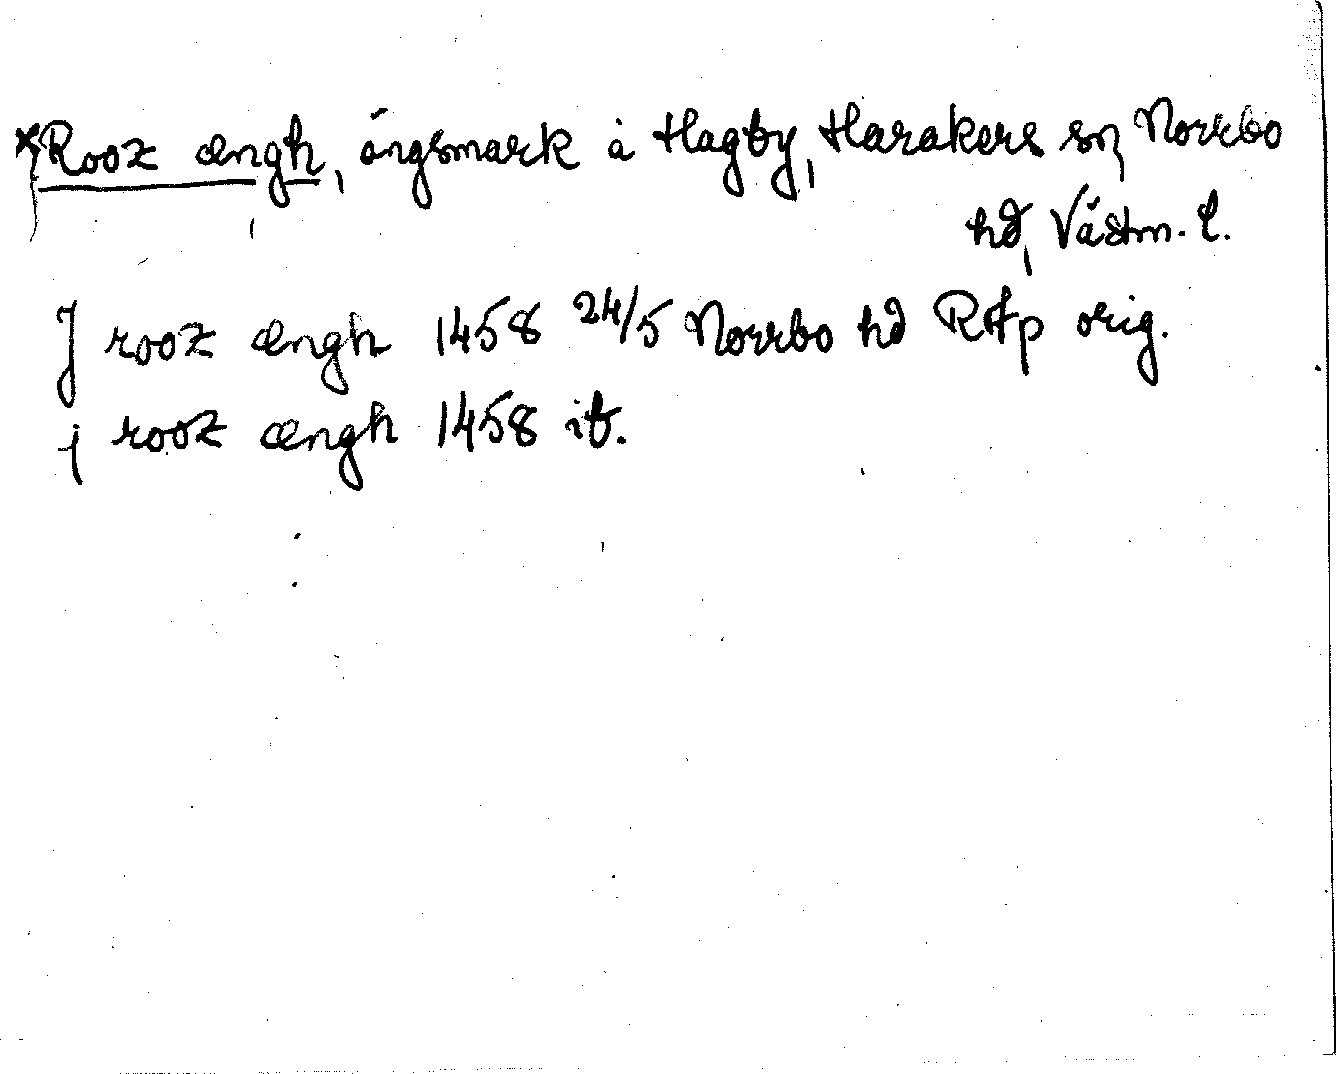 *Rooz ængh, ängsmark å Hagby, Harakers sn, Norrbo
hd, Västm. l.
J rooz ængh 1458 24/5 Norrbo hd RAp orig.
j rooz ængh 1458 ib.